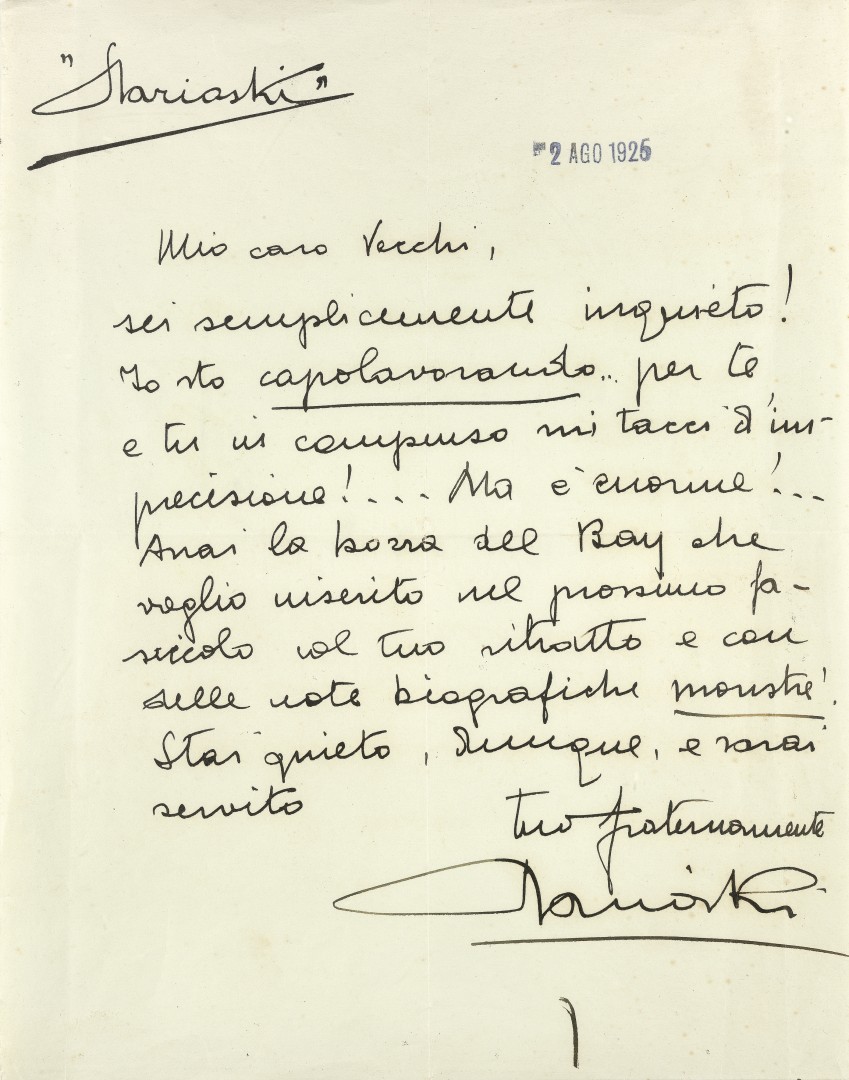 "Mariaski"
2 AGO 1925
Mio caro Vecchi,
sei semplicemente inquieto!
Io sto capolavorando... per te,
e tu in compenso mi tacci d'im-
precisione!.... Ma è enorme!...
Avrai la bozza del Bay che
voglio inserito nel prossimo fa-
scicolo col tuo ritratto e con
delle note biografiche monstre.
Stai quieto, dunque, e sarai
servito
tuo fraternamente
Mariaski